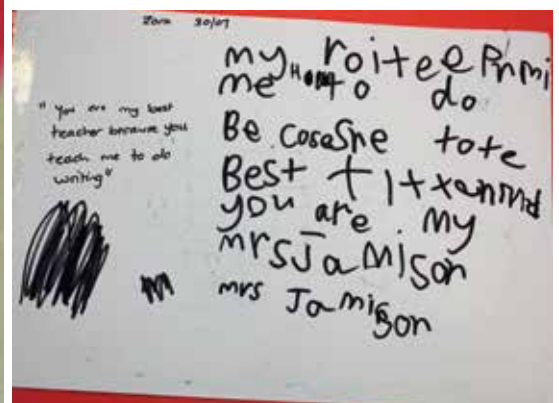 Zara 30/07
"You are my best
teacher because you
teach me to do
writing"
my roitee
me How to do
Be cosesne tote
Best
you are my
mrs Jamison
mrs Jamison